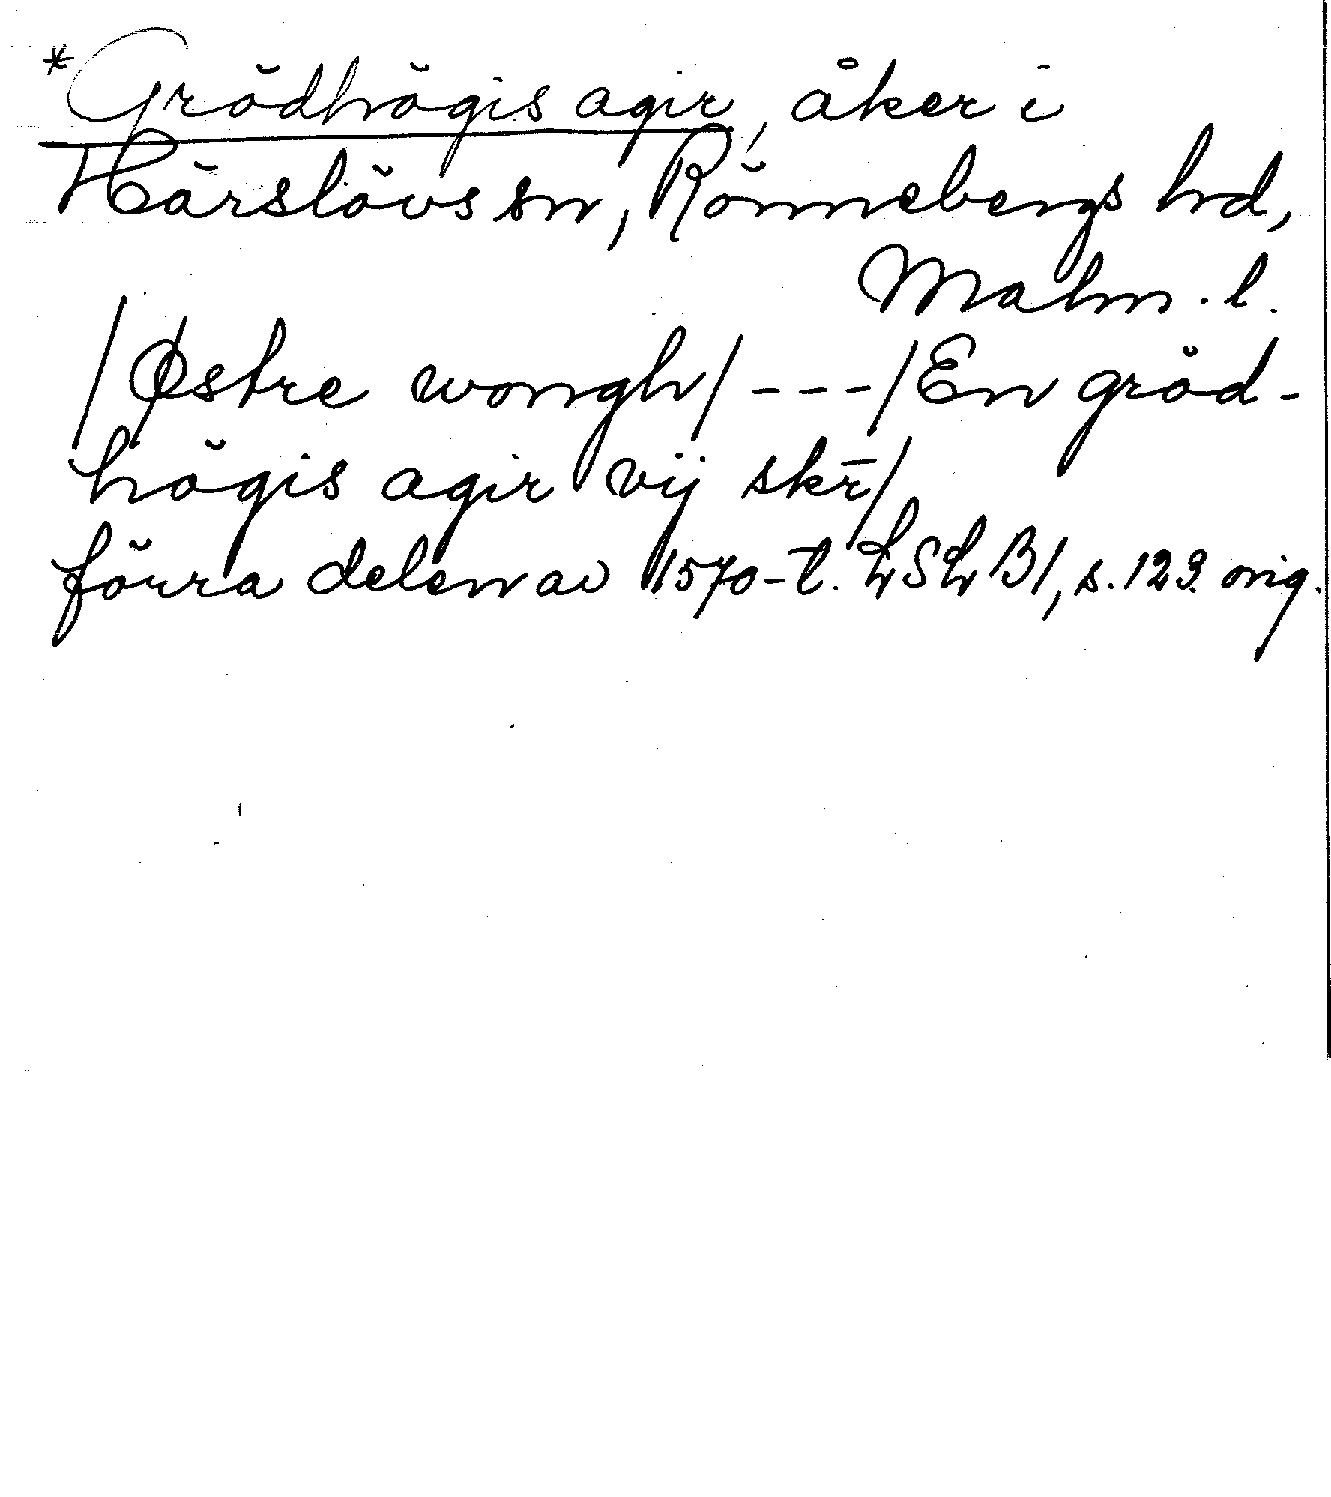 *Grödhögis agir, åker i
Härslövs sn, Rönnebergs hd,
Malm. l.
/Østre wongh/ - - - /En gröd-
högis agir vij skr̄/
förra delen av 1570-t. LSLB1, s. 123. orig.